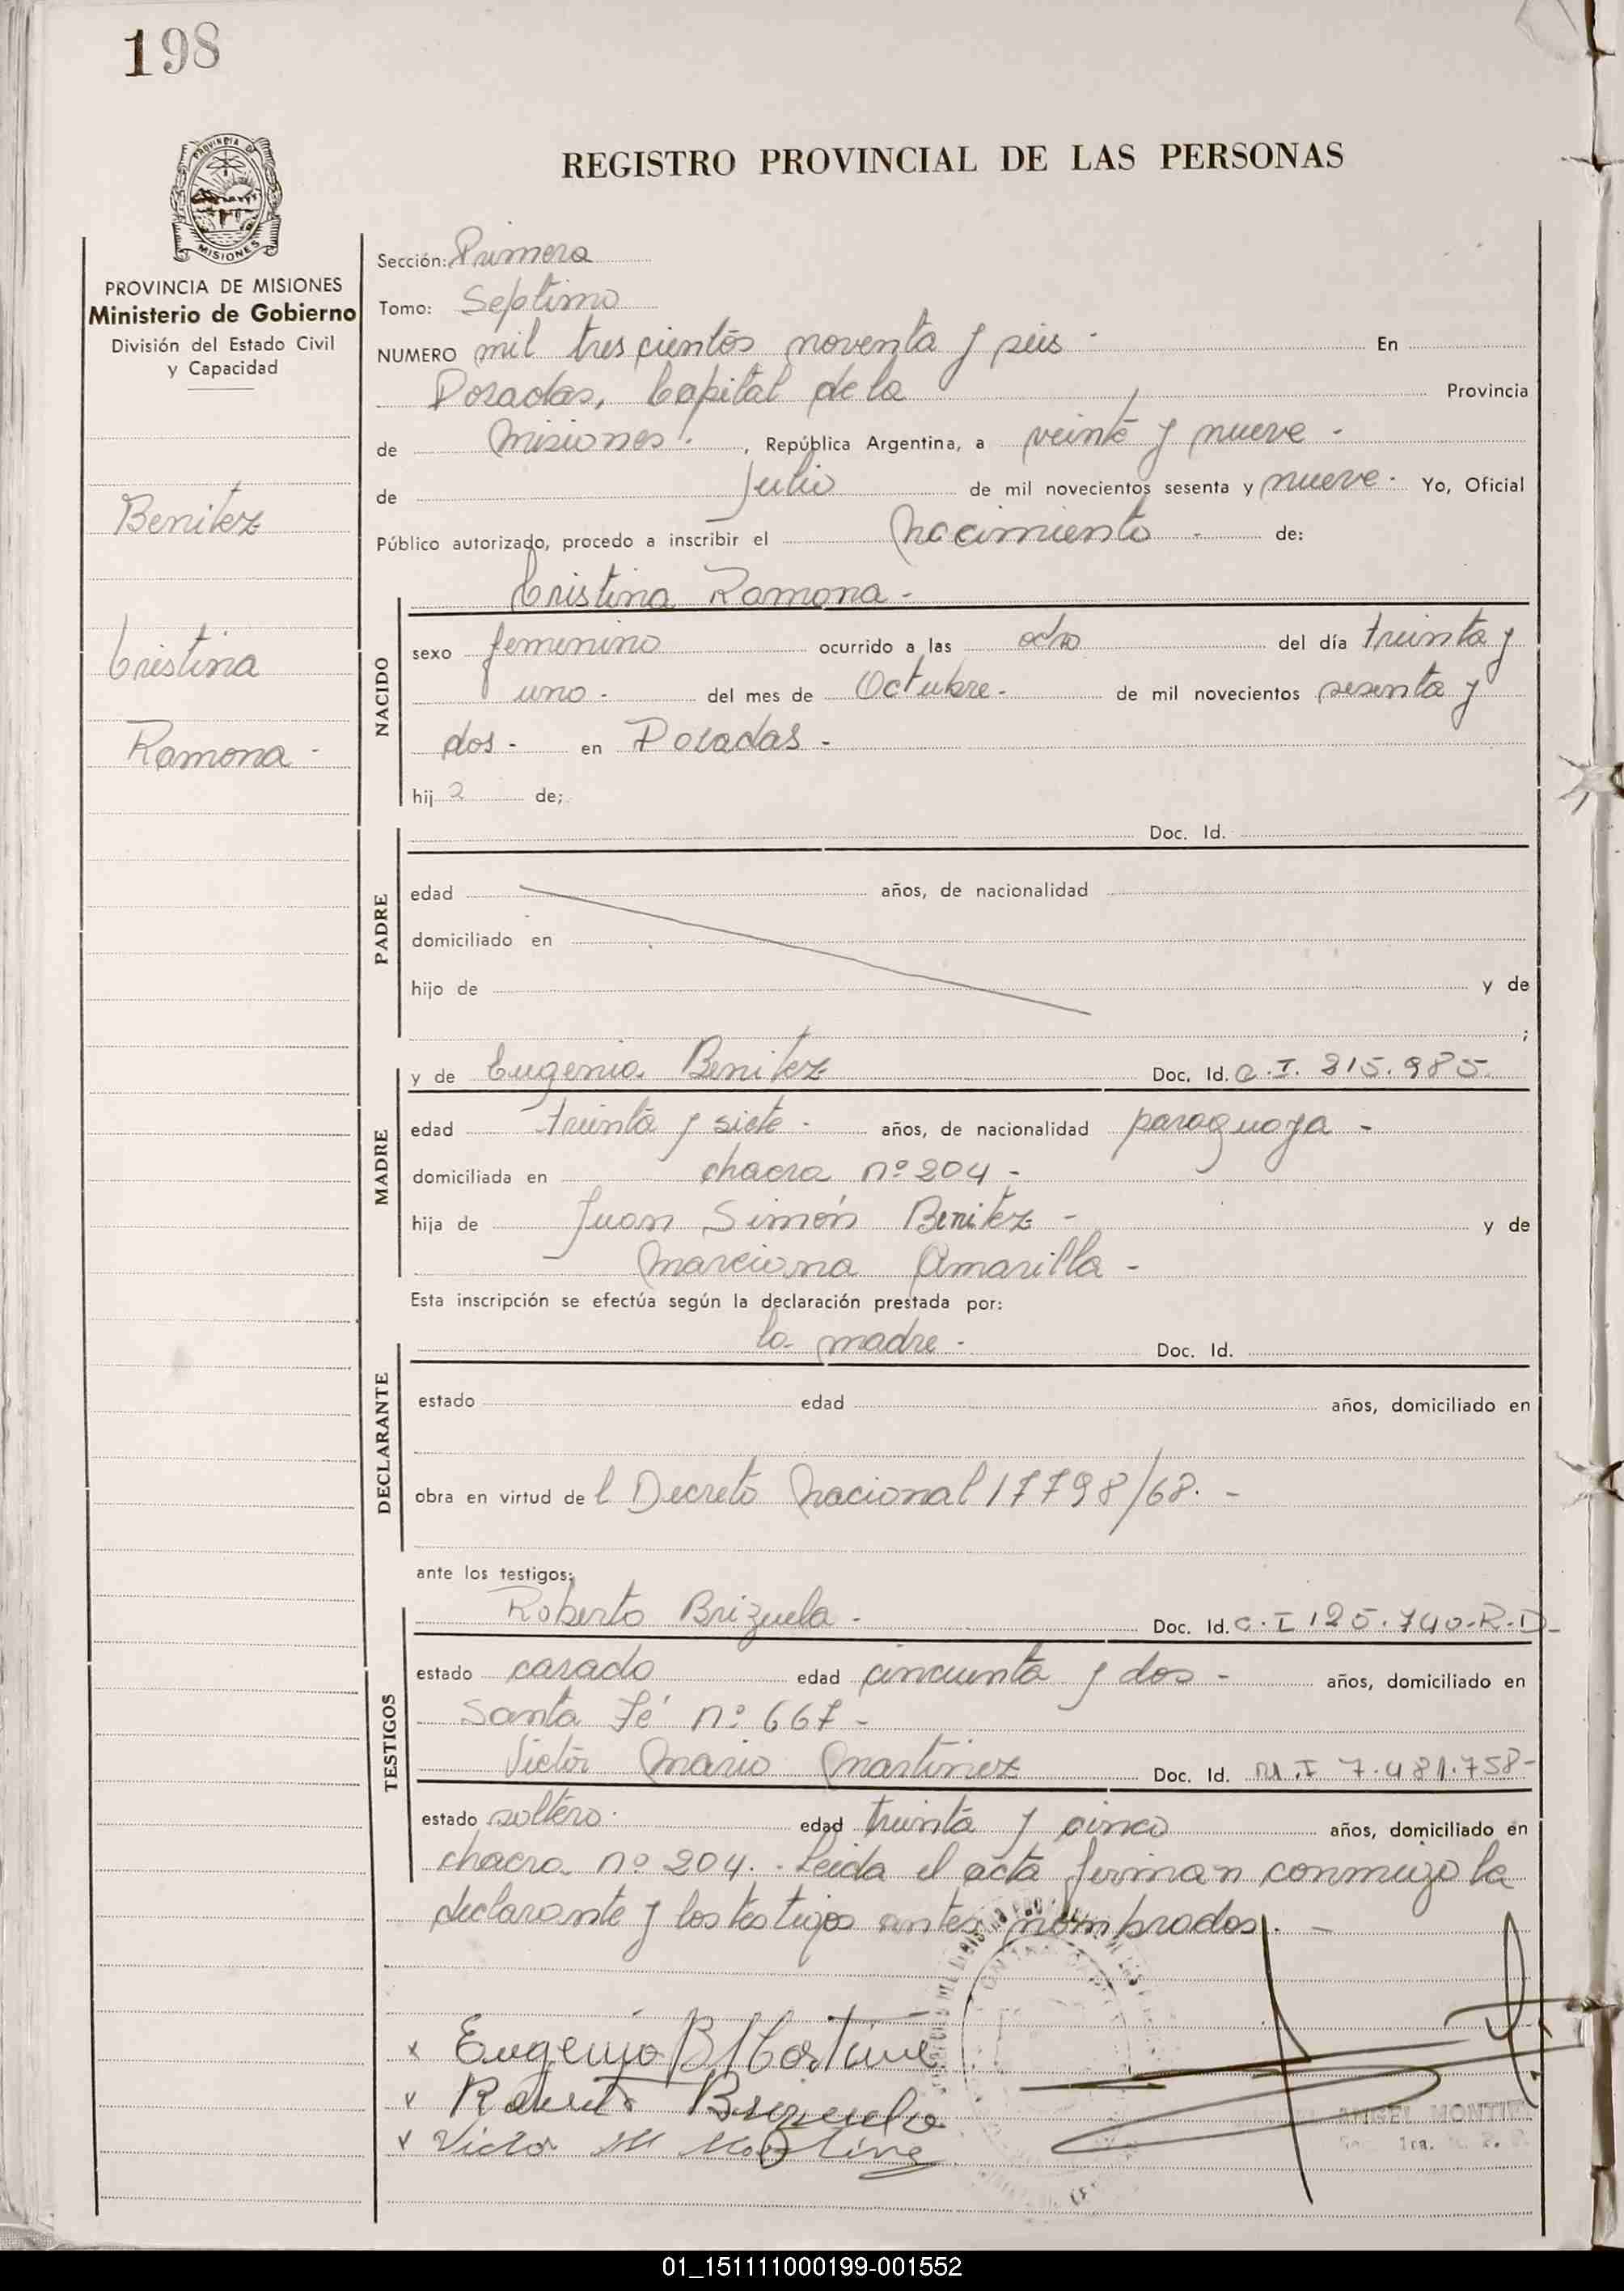 198
REGISTRO PROVINCIAL DE LAS PERSONAS
PROVINCIA DE MISIONES
PROVINCIA DE MISIONES
Ministerio de Gobierno
División del Estado Civil
y Capacidad
Benitez
Cristina
Ramona -
Sección: Primera
Tomo: Septimo
NUMERO mil trescientos noventa y seis - En
Posadas, Capital de la Provincia
de Misiones. , República Argentina, a veinte y nueve -
de Julio de mil novecientos sesenta y nueve - Yo, Oficial
Público autorizado, procedo a inscribir el Nacimiento - de:
Cristina Ramona -
NACIDO
sexo femenino ocurrido a las ocho del día treinta y
uno - del mes de Octubre - de mil novecientos sesenta y
dos - en Posadas -
hij a de;
Doc. Id.
PADRE
edad años, de nacionalidad
domiciliado en
hijo de y de
;
y de Eugenia Benitez Doc. Id. C.I. 215.985.
MADRE
edad treinta y siete - años, de nacionalidad paraguaya -
domiciliada en chacra nº 204 -
hija de Juan Simón Benitez - y de
Marciana Amarilla -
Esta inscripción se efectúa según la declaración prestada por:
la madre - Doc. Id.
DECLARANTE
estado edad años, domiciliado en
obra en virtud de l Decreto Nacional 17798/68. -
ante los testigos:
Roberto Brizuela - Doc. Id. C.I 125.740-R.D-
TESTIGOS
estado casado edad cincuenta y dos - años, domiciliado en
Santa Fé nº 667 -
Victor Mario Martinez Doc. Id. M.I 7.481.758-
estado soltero. edad treinta y cinco años, domiciliado en
chacra nº 204. - Leida el acta firman conmigo la
declarante y los testigos antes nombrados. -
Eugenia
Brizuela
Victor M
ANGEL MONTIE
1ra.
01_151111000199-001552